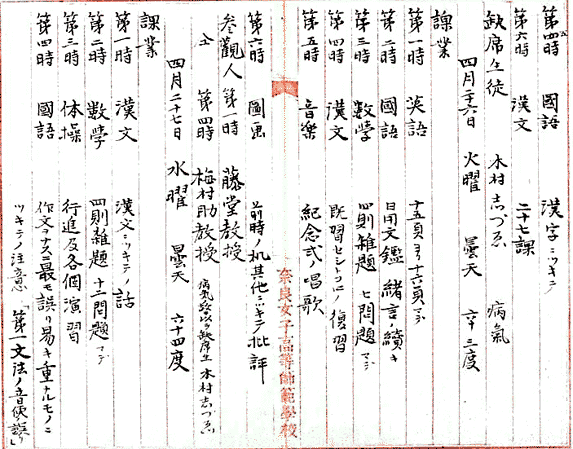 第四時 國語 漢字ニツキテ
第六時 漢文 二十七課
缺席生徒 木村志づゑ 病氣
四月二十六日 火曜 曇天 六十三度
課業
第一時 英語 十五頁ヨリ十六頁マデ
第二時 國語 日用文鑑 緒言ノ續キ
第三時 數學 四則雑題 七問題マデ
第四時 漢文 既習セシトコロノ復習
第五時 音樂 紀念式ノ唱歌
第六時 圖画 前時ノ机其他ニツキテ批評
参觀人 第一時 藤堂教授
仝 第四時 梅村助教授
病氣 缺席生 木村志づゑ
四月二十七日 水曜 曇天 六十四度
課業
第一時 漢文 漢文ニツキテノ話
第二時 數學 四則雑題 十二問題マデ
第三時 体操 行進及各個演習
第四時 國語 作文ヲナスニ最モ誤リ易キ重ナルモノニ
ツキテノ注意 「第一文法ノ音便ノ誤リ」
奈良女子高等師範學校